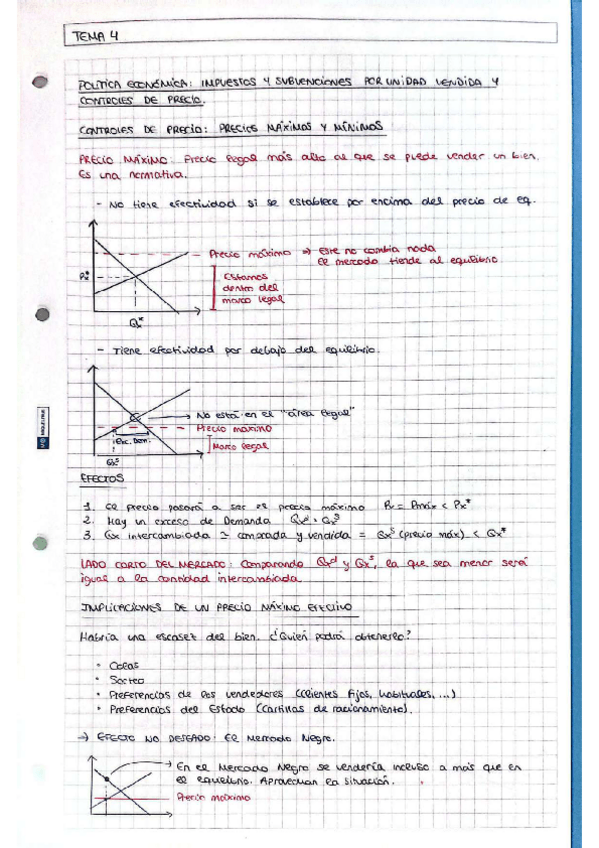 TEMA 4
POLÍTICA ECONÓMICA: IMPUESTOS Y SUBVENCIONES POR UNIDAD VENDIDA Y
CONTROLES DE PRECIO.
CONTROLES DE PRECIO: PRECIOS MÁXIMOS Y MÍNIMOS
PRECIO MÁXIMO: Precio legal más alto al que se puede vender un bien.
Es una normativa.
- No tiene efectividad si se establece por encima del precio de eq.
Precio máximo → este no cambia nada
el mercado tiende al equilibrio
Px*
Estamos
dentro del
marco legal
Qx*
- Tiene efectividad por debajo del equilibrio.
→ No está en el "área legal"
Precio máximo
Exc. Dem.
Marco legal
Qxs
EFECTOS
1. El precio pasará a ser el precio máximo Px = Pmáx < Px*
2. Hay un exceso de Demanda Qxd > Qxs
3. Qx intercambiada ≃ comprada y vendida = Qxs (precio máx) < Qx*
LADO CORTO DEL MERCADO: Comparando Qxd y Qxs, la que sea menor será
igual a la cantidad intercambiada.
IMPLICACIONES DE UN PRECIO MÁXIMO EFECTIVO
Habría una escasez del bien. ¿Quién podrá obtenerlo?
• Colas
• Sorteo
• Preferencias de los vendedores (clientes fijos, habituales, ...)
• Preferencias del Estado (Cartillas de racionamiento).
→ EFECTO NO DESEADO: El Mercado Negro.
→ En el Mercado Negro se vendería incluso a más que en
el equilibrio. Aprovechan la situación.
Precio máximo